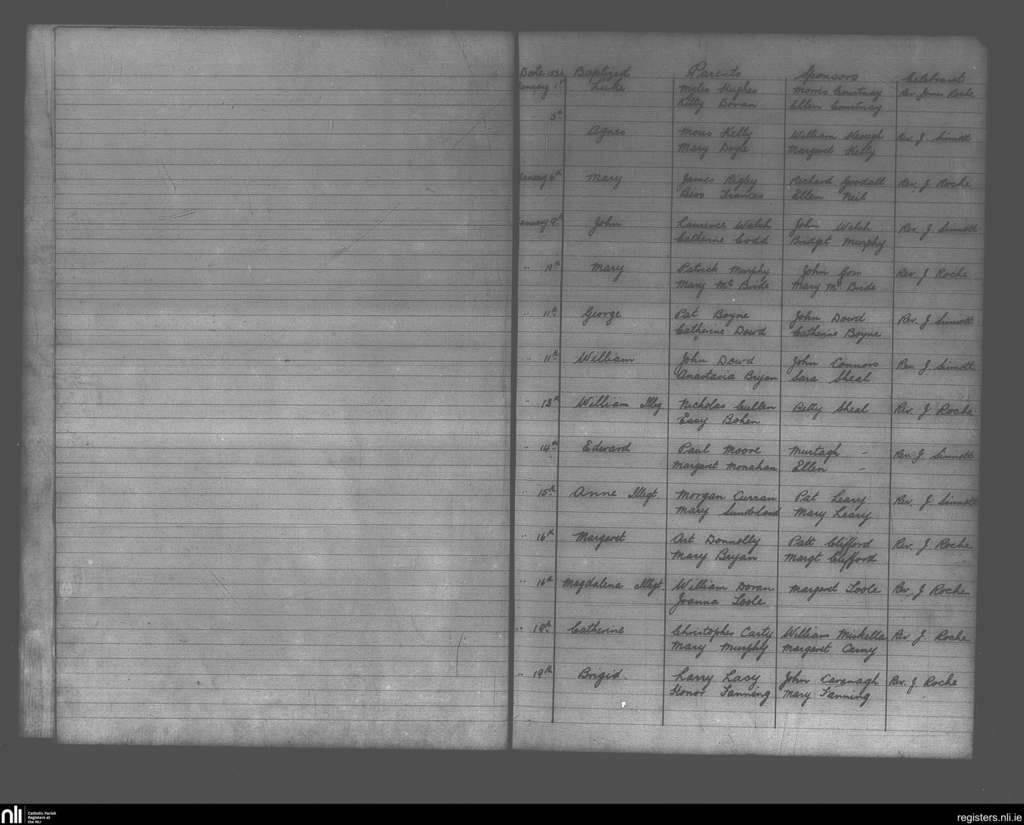 Date 1832 Baptized Parents Sponsors Celebrant
January 1st Luke Myles Hughes Morris Courtnay Rev. James Roche
Kitty Doran Ellen Courtnay
" 5th
Agnes Moses Kelly William Keough Rev. J. Sinnott
Mary Doyle Margaret Kelly
January 6th Mary James Rigley Richard Goodall Rev. J. Roche
Bess Frances Ellen Neil
January 9th John Laurence Walsh John Walsh Rev. J. Sinnott
Catherine Codd Bridget Murphy
" 10th Mary Patrick Murphy John Rev. J Roche
Mary Mc Bride Mary Mc Bride
" 11th George Pat Boyne John Dowd Rev. J. Sinnott
Catherine Dowd Catherine Boyne
" 11th William John Dowd John Connors Rev. J. Sinnott
Anastasia Bryan Sara Sheal
" 13th William Illeg Nicholas Cullen Betty Sheal Rev. J. Roche
Easy Bohen
" 14th Edward Paul Moore Murtagh - Rev. J. Sinnott
Margaret Monahan Ellen -
" 15th Anne Illegt. Morgan Curran Pat Leary Rev. J. Sinnott
Mary Sunderland Mary Leary
" 16th Margaret Art Donnelly Patt Clifford Rev. J. Roche
Mary Bryan Margt Clifford
" 16th Magdalena Illegt. William Doran Margaret Toole Rev. J Roche
Joanna Toole
" 18th Catherine Christopher Carty William Rev J. Roche
Mary Murphy Margaret Carny
" 19th Brigid. Larry Lacy John Cavenagh Rev. J Roche
Honor Fanning Mary Fanning
nli Catholic Parish
Registers at
the NLI
registers.nli.ie